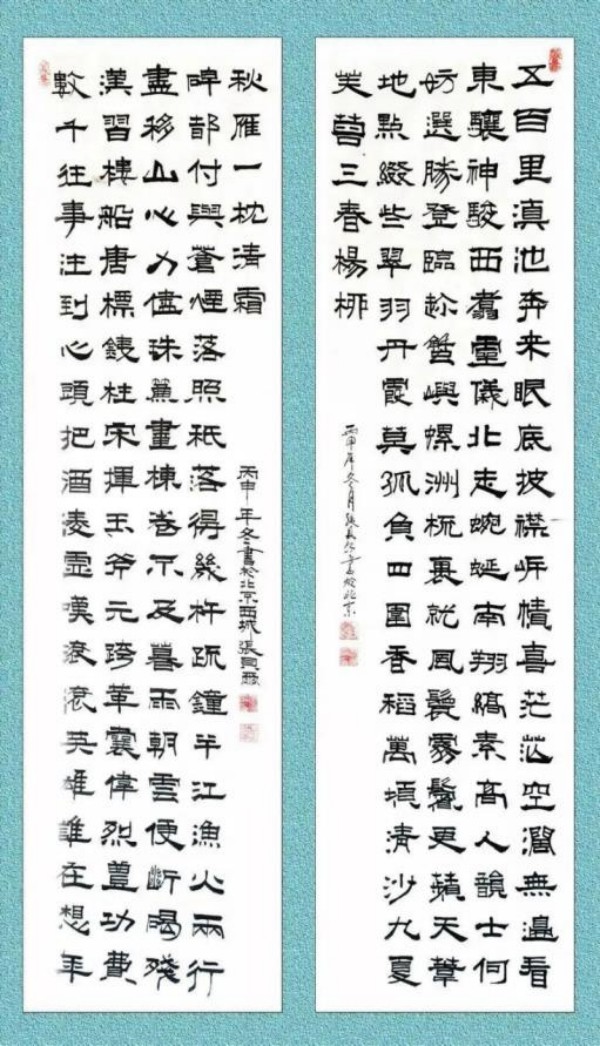 五百里滇池奔来眼底披襟岸幘喜茫茫空闊無邊看
東驤神駿西翥靈儀北走蜿蜒南翔縞素高人韻士何
妨選勝登臨趁蟹嶼螺洲梳裹就風鬟霧鬢更蘋天葦
地點綴些翠羽丹霞莫孤負四圍香稻萬頃清沙九夏
芙蓉三春楊柳
丙申年冬月張書於北京
數千往事注到心頭把酒凌虛嘆滾滾英雄誰在想年
漢習樓船唐標鐵柱宋揮玉斧元跨革囊偉烈豐功費
盡移山心力儘珠簾畫棟卷不及暮雨朝雲便斷碣殘
碑都付與蒼煙落照祇落得幾杵疏鐘半江漁火兩行
秋雁一枕清霜
丙申年冬書於北京西城張興